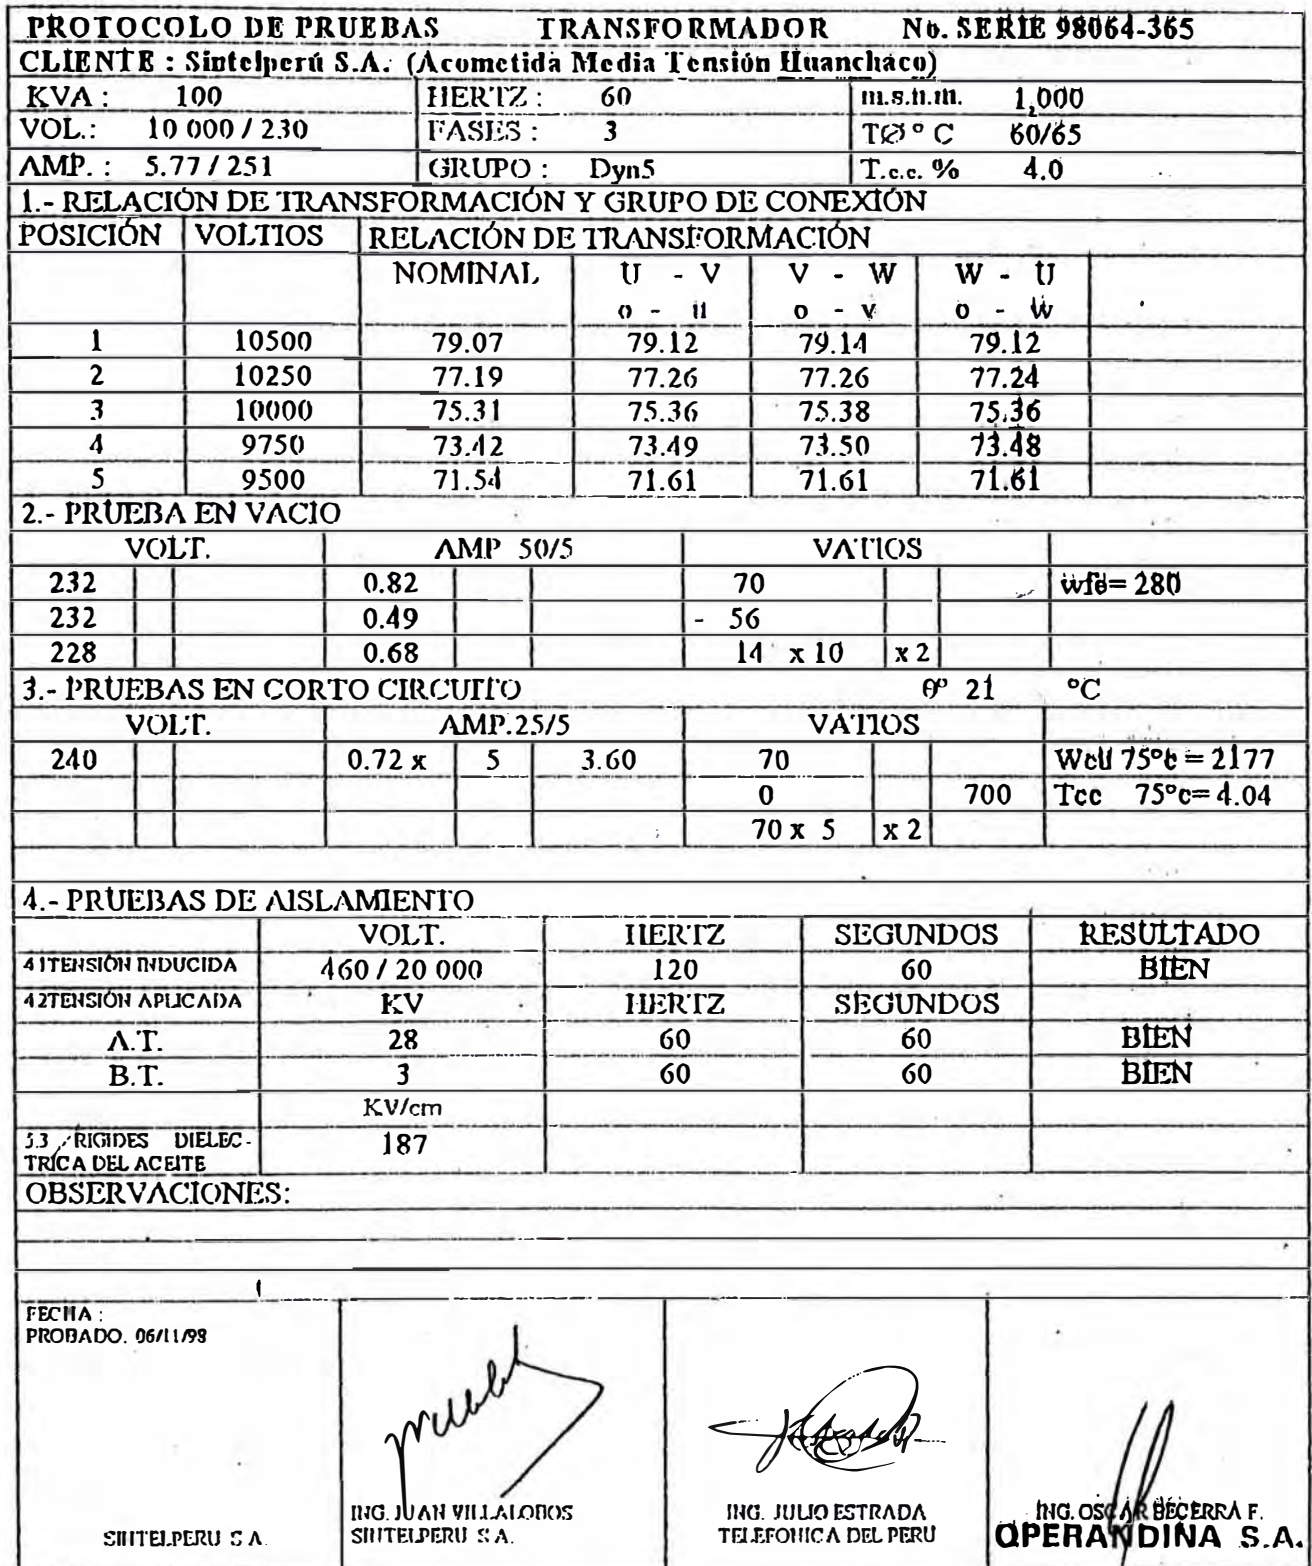 PROTOCOLO DE PRUEBAS TRANSFORMADOR No. SERIE 98064-365
CLIENTE : Sintelperú S.A. (Acometida Media Tensión Huanchaco)
KVA : 100 HERTZ : 60 m.s.n.m. 1,000
VOL.: 10 000 / 230 FASES : 3 TØ ° C 60/65
AMP. : 5.77 / 251 GRUPO : Dyn5 T.c.c. % 4.0
1.- RELACIÓN DE TRANSFORMACIÓN Y GRUPO DE CONEXIÓN
POSICIÓN VOLTIOS RELACIÓN DE TRANSFORMACIÓN
NOMINAL U - V V - W W - U
o - u o - v o - w
1 10500 79.07 79.12 79.14 79.12
2 10250 77.19 77.26 77.26 77.24
3 10000 75.31 75.36 75.38 75.36
4 9750 73.42 73.49 73.50 73.48
5 9500 71.54 71.61 71.61 71.61
2.- PRUEBA EN VACIO
VOLT. AMP 50/5 VATIOS
232 0.82 70 wfe= 280
232 0.49 - 56
228 0.68 14 x 10 x 2
3.- PRUEBAS EN CORTO CIRCUITO θ° 21 °C
VOLT. AMP.25/5 VATIOS
240 0.72 x 5 3.60 70 Wcu 75°c = 2177
0 700 Tcc 75°c= 4.04
70 x 5 x 2
4.- PRUEBAS DE AISLAMIENTO
VOLT. HERTZ SEGUNDOS RESULTADO
41TENSIÓN INDUCIDA 460 / 20 000 120 60 BIEN
42TENSIÓN APLICADA KV HERTZ SEGUNDOS
A.T. 28 60 60 BIEN
B.T. 3 60 60 BIEN
KV/cm
3.3 RIGIDES DIELEC- 187
TRICA DEL ACEITE
OBSERVACIONES:
FECHA :
PROBADO. 06/11/98
ING. JUAN VILLALOBOS ING. JULIO ESTRADA ING. OSCAR BECERRA F.
SINTELPERU S.A. SINTELPERU S.A. TELEFONICA DEL PERU OPERANDINA S.A.